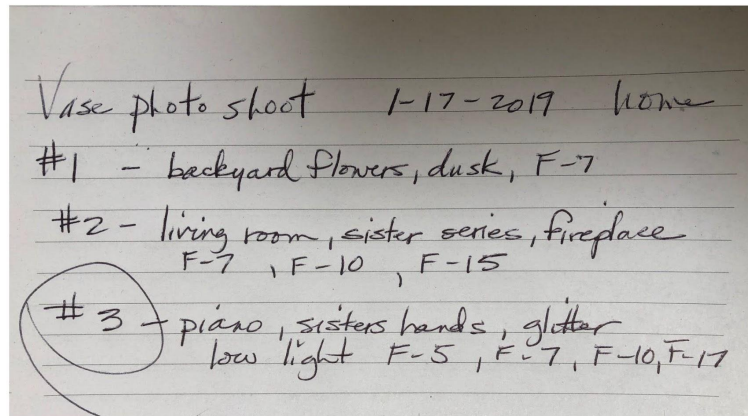 Vase photo shoot 1-17-2019 home
#1 - backyard flowers, dusk, F-7
#2 - living room, sister series, fireplace
F-7 , F-10 , F-15
#3 - piano, sisters hands, glitter
low light F-5 , F-7, F-10, F-17